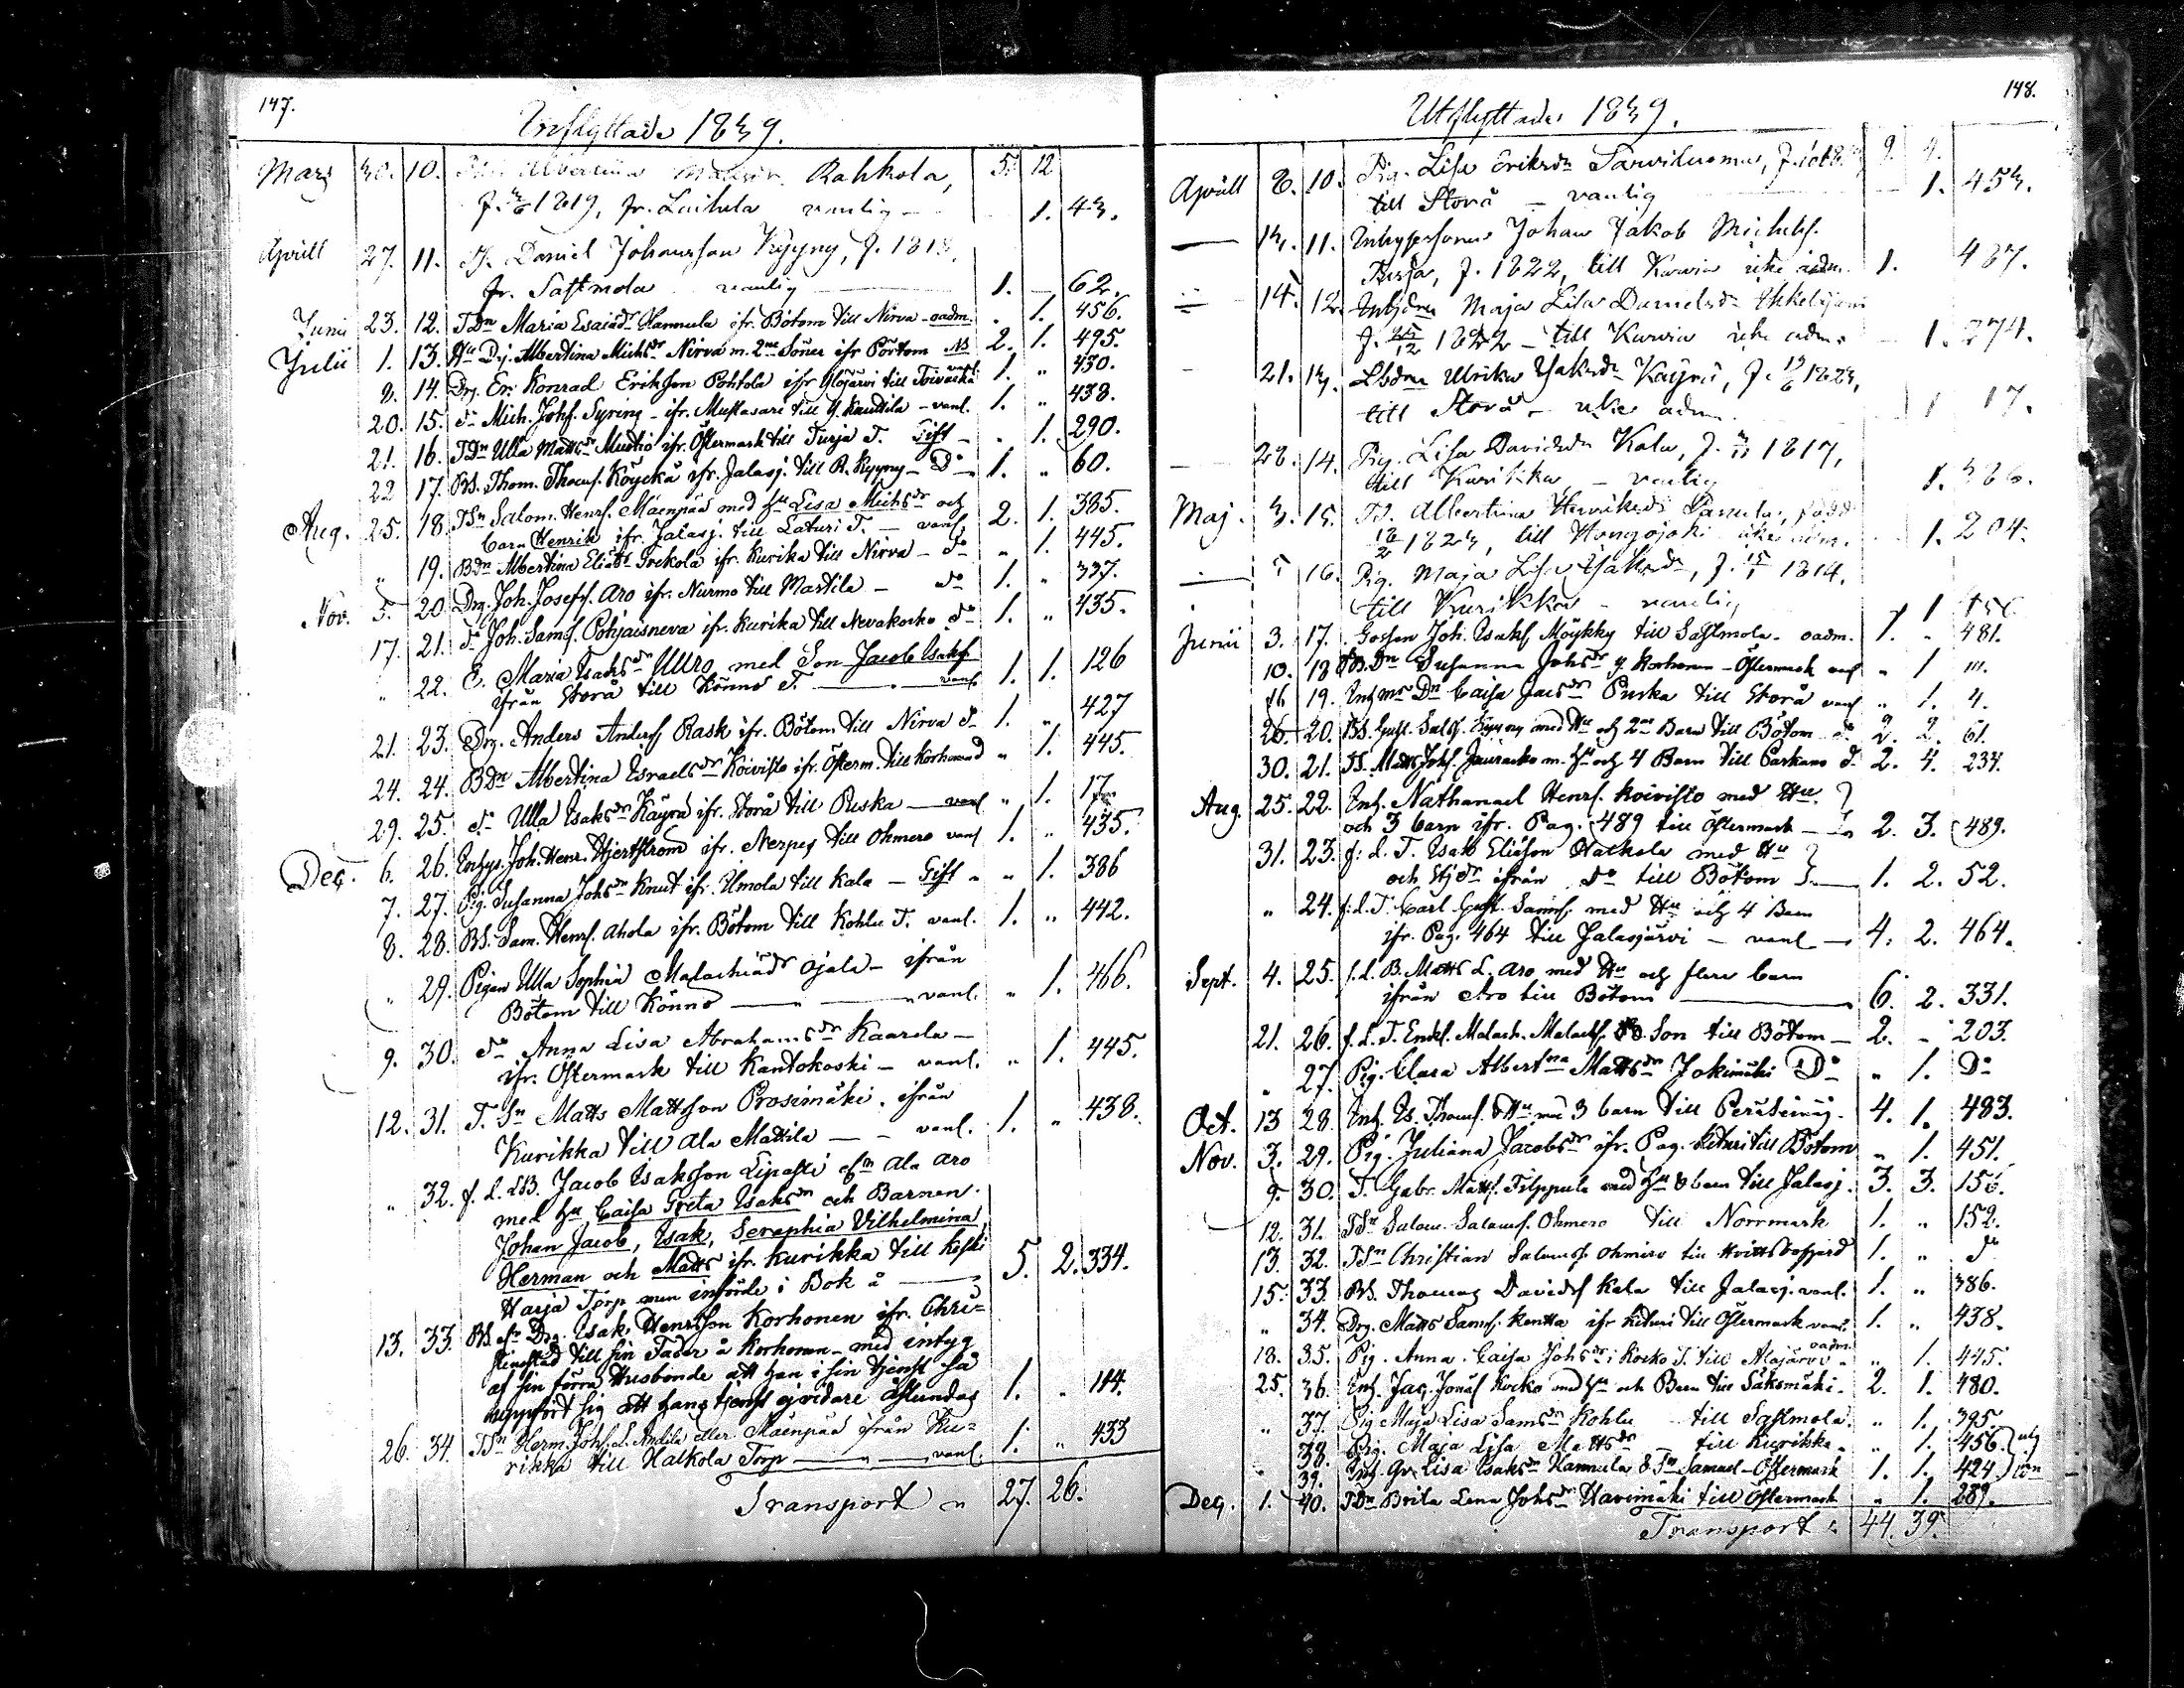 147.
Inflyttade 1839.
Mars 30. 10. Albertina Rahkola, 5. 12
f. 1819, fr. Laihela vanlig - 1. 43.
Aprill 27. 11. Daniel Johansson Kyyny, f. 1818.
fr. Sastmola vanlig 1. - 62.
Junii 23. 12. TDn Maria Esaiædr Hannula ifr. Bötom till Nirva - oadm. " 1. 456.
Julii 1. 13. Hu Drj. Albertina Michsdr Nirva m. 2ne Söner ifr Pörtom NB 2. 1. 495.
9. 14. Drg. Er. Konrad Erikson Pohtola ifr Ylöjärvi till Toivacka vanl. 1. " 430.
20. 15. do Mich. Johs. Syring - ifr. Mustasari till Y. Knuttila - vanl. 1. " 438.
21. 16. TDn Ulla Mattsdr Mustio ifr. Östermark till Turja T. Gift - " 1. 290.
22 17. BS. Thom. Thoms. Köyckä ifr. Jalasj. till R. Kyyny - Do 1. " 60.
Aug. 25. 18. TSn Salom. Henrs. Mäenpää med hu Lisa Michsdr och 2. 1. 385.
barn Henrik ifr. Jalasj. till Laturi T. - vanl.
" 19. BDn Albertina Eliædr Grekola ifr. Kurika till Nirva - do " 1. 445.
Nov. 5. 20 Drg. Joh. Josefs. Aro ifr. Nurmo till Martila - do 1. " 337.
17. 21. do Joh. Sams. Pohjaisneva ifr. Kurika till Nevakosko do 1. " 435.
" 22. E. Maria Isaksdr Uuro med Son Jacob Isaks. 1. 1. 126
ifrån Storå till Könnö T. vanl.
21. 23. Drg. Anders Anders. Rask ifr. Bötom till Nirva do 1. " 427
24. 24. BDn Albertina Israelsdr Koivisto ifr. Österm. till Korhonen " 1. 445.
29. 25. do Ulla Isaksdr Käyrä ifr. Storå till Ruska - vanl. " 1. 17.
Dec. 6. 26. Enhys. Joh. Henr. Hjertström ifr. Nerpes till Ohmero vanl. 1. " 435.
7. 27. Pig. Susanna Johsdr Knut ifr. Ilmola till Kala - Gift " " 1. 386
8. 28. BS. Sam. Henrs. Ahola ifr. Bötom till Kohlu T. vanl. 1. " 442.
" 29. Pigan Ulla Sophia Malachiædr Ojala - ifrån
Bötom till Könnö vanl. " 1. 466.
9. 30. do Anna Lisa Abrahamsdr Kaarela -
ifr. Östermark till Kantokoski - vanl. " 1. 445.
12. 31. T. Sn Matts Mattsson Prosimäki ifrån
Kurikka till Ala Mattila - - vanl. 1. " 438.
" 32. f. d. LB. Jacob Isaksson Lipasti Ala Aro
med hu Caisa Greta Isaksdr och Barnen
Johan Jacob, Isak, Seraphia Vilhelmina,
Herman och Matts ifr. Kurikka till Keski 5. 2. 334.
Harja Torp men införde i Bok å
13. 33. BS. Drg. Isak Henrsson Korhonen ifr. Chri=
stinestad till sin Fader å Korhonen - med intyg
af sin förra Husbonde att han i sin tjenst så
uppfört sig att hans tjenst ej vidare åstundas 1. " 114.
26. 34. TSn Herm. Johs. L. Andila eller Mäenpää ifrån Ku=
rikka till Halkola Torp vanl. 1. " 433
Transport " 27. 26.
148.
Utflyttade 1839.
Aprill 8. 10. Pig. Lisa Eriksdr Sarviluoma, 9. 4.
till Storå - vanlig 1. 453.
13. 11. Inhyses Johan Jakob Michels.
Turja, f. 1822, till Karvia icke adm. 1. 487.
14. 12. Maja Lisa Danielsdr
f. 25/12 1822 - till Karvia icke adm. 1. 274.
21. 13. Ulrika Isaksdr Käyrä, f. 19/6 1823,
till Storå - icke adm. 1 17.
28. 14. Pig. Lisa Davidsdr Kala, f. 1817,
till Kurikka - vanlig 1. 386.
Maj. 3. 15. Albertina Henriksdr född
1823, till Hongojoki icke adm. 1. 204.
5 16. Pig. Maja Lisa Isaksdr, f. 15/1 1814.
till Kurikka - vanlig 1
Junii 3. 17. Gossen Joh. Isaks. Möykky till Sastmola. oadm. 1. " 481.
10. 18 BDn Susanna Johsdr Y Korhonen - Östermark vanl " 1 111.
16 19. Inhms Dn Caisa Jacsdr Puska till Storå vanl " 1. 4.
26. 20. BS. Gust. Sals. Kyyny med Hu och 2ne Barn till Bötom do 2. 2. 61.
30. 21. TS. Matts Johs. Jauracko m. Hu och 4 Barn till Parkano do 2. 4. 234.
Aug. 25. 22. Inh. Nathanael Henrs. Koivisto med Hu
och 3 barn ifr. Pag. 489 till Östermark 2. 3. 489.
31. 23. f. d. T. Isak Eliæson Halkola med Hu
och Stjdr ifrån do till Bötom 1. 2. 52.
" 24. f. d. T. Carl Gust. Sams. med Hu och 4 Barn
ifr. Pag. 464 till Jalasjärvi - vanl 4. 2. 464.
Sept. 4. 25. f. d. B. Matts L. Aro med Hu och flera barn
ifrån Aro till Bötom 6. 2. 331.
21. 26. f. d. T. Enkl. Malach. Malachs. & Son till Bötom 2. " 203.
" 27. Pig. Clara Albertina Mattsdr Jokimäki Do " 1. Do
Oct. 13 28. Inh. Is. Thoms. & Hu må 3 barn till Peräseinäj. 4. 1. 483.
Nov. 3. 29. Pig. Juliana Jacobsdr ifr. Pag. Kituri till Bötom " 1. 451.
9. 30. T. Gabr. Matts. Filppula med Hu & barn till Jalasj. 3. 3. 156.
12. 31. TSn Salom. Saloms. Ohmero till Norrmark 1. " 152.
13. 32. TSn Christian Saloms. Ohmero till Hvittisbofjerd 1. " do
15. 33. BS. Thomas Davids. Kala till Jalasj. vanl. 1. " 386.
" 34. Drg. Matts Sams. Kentta ifr Kituri till Östermark vanl. 1. " 438.
18. 35. Pig. Anna Caisa Johsdr i Kocko T. till Alajärvi oadm. " 1. 445.
25. 36. Inh. Jac. Jonæs. Kocko med Hu och Barn till Säksmäki. 2. 1. 480.
" 37. Pig Maja Lisa Samsdr Kohlu till Sastmola. " 1. 395.
" 38. Pig. Maja Lisa Mattsdr till Kurikka. " 1. 456.
39. Inh. Gr. Lisa Isaksdr Hannula & Sn Samuel - Östermark 1. 1. 424
Dec. 1. 40. TDn Brita Lena Johsdr Havimäki till Östermark " 1. 289.
Transport 44. 39.